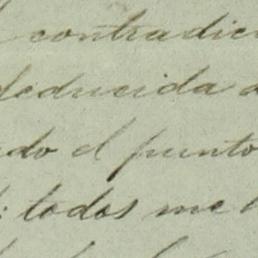 contradic
deducida a
do el punto
: todos me